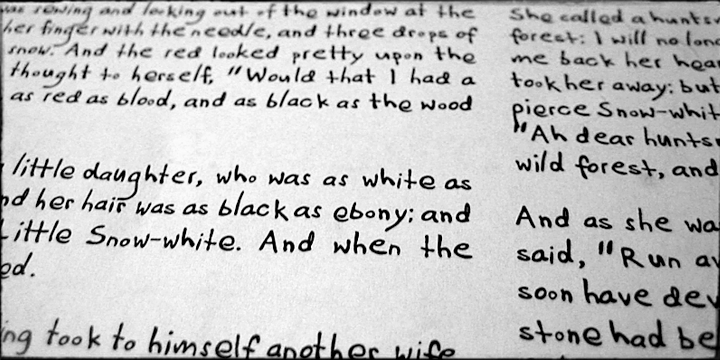 was sewing and looking out of the window at the
her finger with the needle, and three drops of
snow. And the red looked pretty upon the
thought to herself, "Would that I had a
as red as blood, and as black as the wood
little daughter, who was as white as
nd her hair was as black as ebony; and
Little Snow-white. And when the
ed.
ing took to himself another wife
She called a hunts
forest: I will no long
me back her hear
took her away; but
pierce Snow-whit
"Ah dear hunts
wild forest, and
And as she wa
said, "Run aw
soon have dev
stone had be